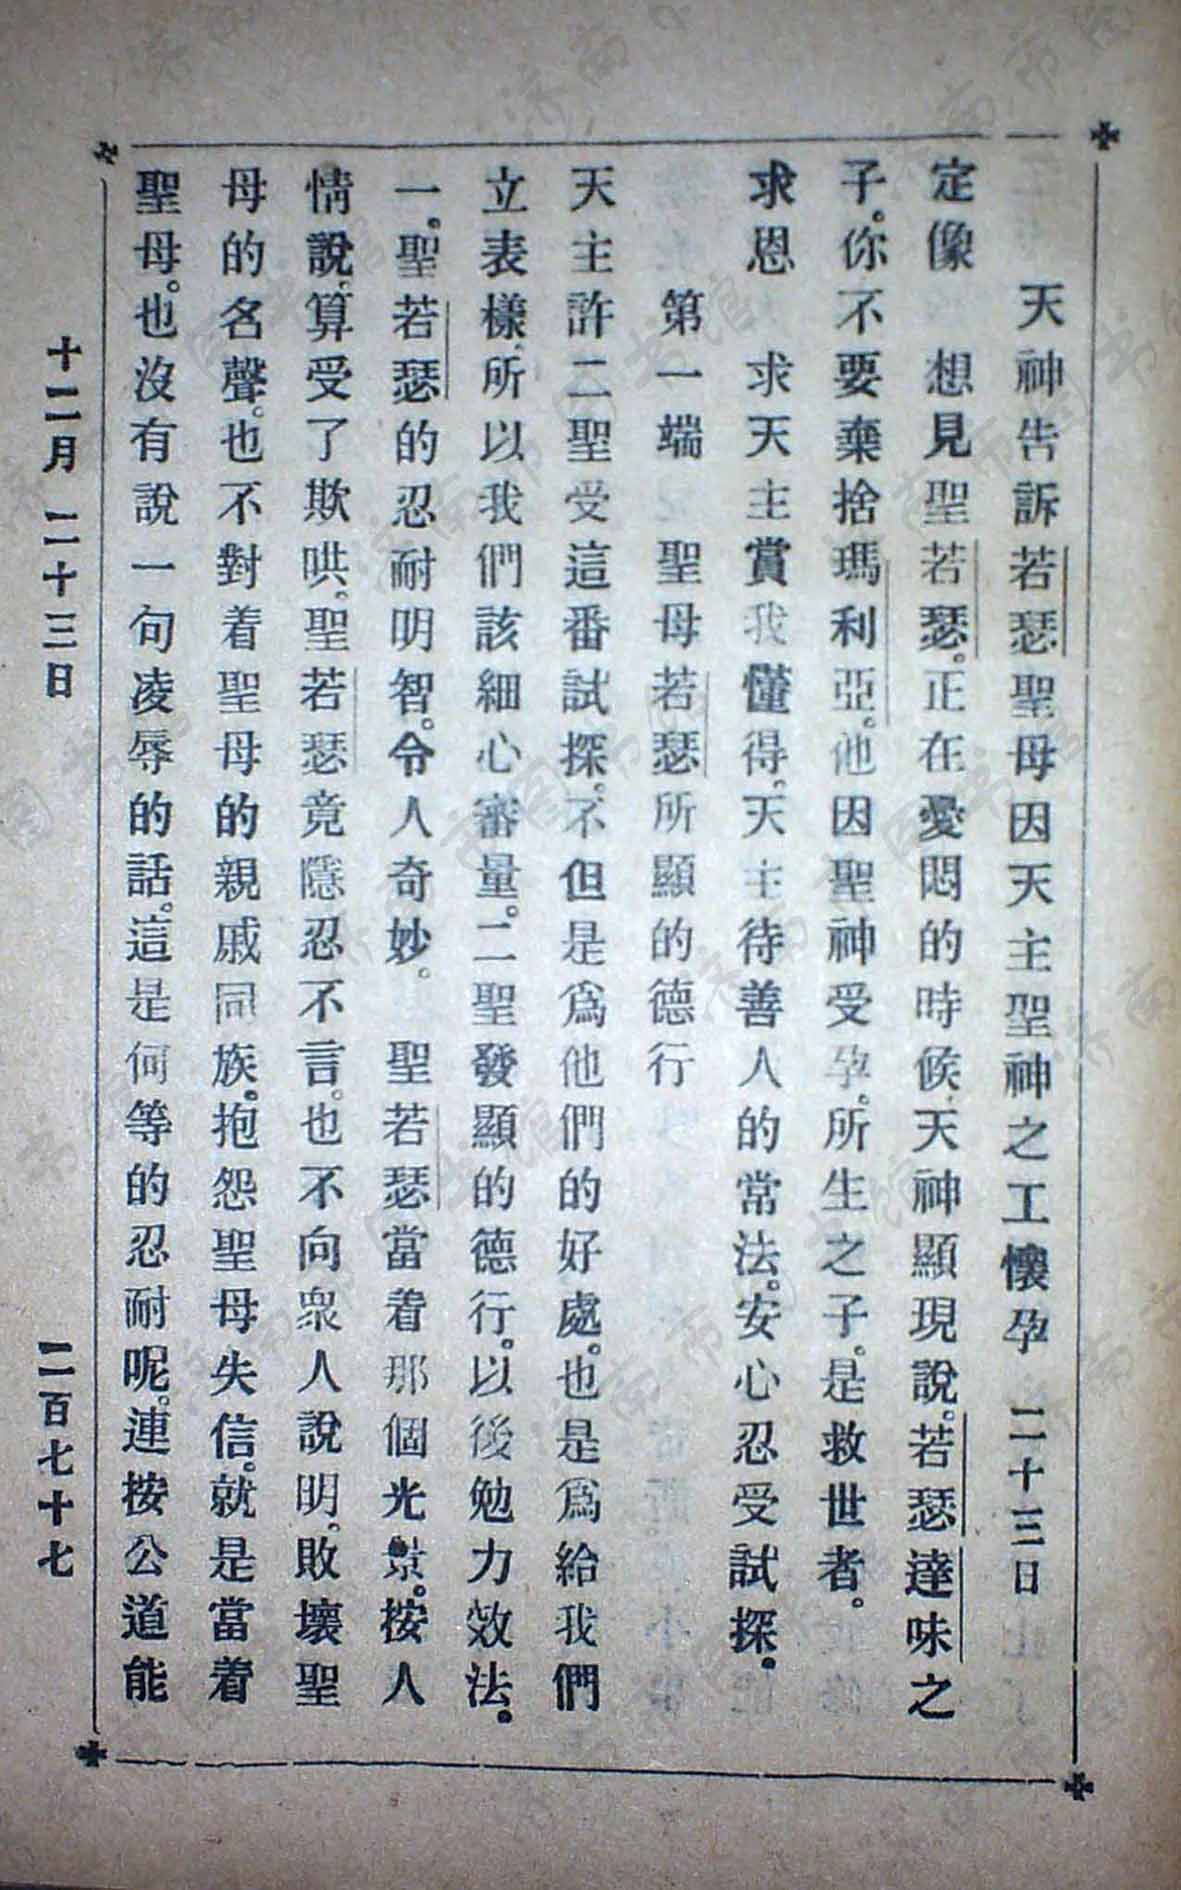 天神告訴若瑟聖母因天主聖神之工懷孕 二十三日
定像 想見聖若瑟。正在憂悶的時候、天神顯現說。若瑟達味之
子。你不要棄捨瑪利亞。他因聖神受孕。所生之子。是救世者。
求恩 求天主賞我懂得。天主待善人的常法。安心忍受試探。
第一端 聖母若瑟所顯的德行
天主許二聖受這番試探。不但是爲他們的好處。也是爲給我們
立表樣、所以我們該細心審量。二聖發顯的德行。以後勉力效法。
一。聖若瑟的忍耐明智。令人奇妙。 聖若瑟當着那個光景。按人
情說、算受了欺哄。聖若瑟竟隱忍不言。也不向衆人說明。敗壞聖
母的名聲。也不對着聖母的親戚同族。抱怨聖母失信。就是當着
聖母。也沒有說一句凌辱的話。這是何等的忍耐呢。連按公道能
十二月二十三日 二百七十七
濟南市圖书馆